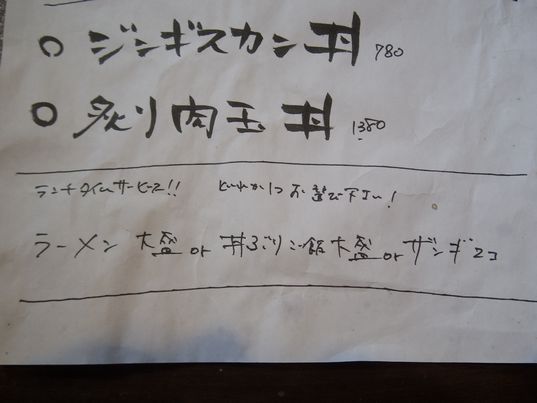 ○ ジンギスカン丼 780
○ 炙り肉玉丼 1380
ランチタイムサービス!! どれか1つお選び下さい!
ラーメン 大盛 or 丼ぶりご飯大盛 or ザンギ2コ